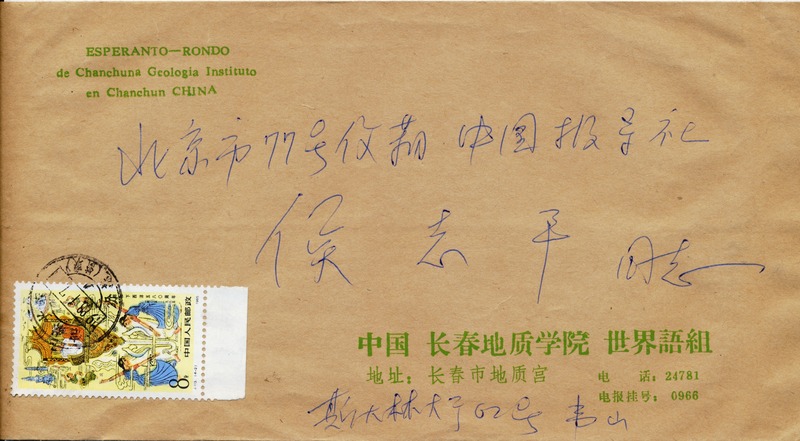 ESPERANTO—RONDO
de Chanchuna Geologia Instituto
en Chanchun CHINA
北京市77号信箱 中国报导社
侯志平 同志
中国人民邮政
8分
中国 长春地质学院 世界語組
地址: 长春市地质宫 电 话: 24781
电报挂号: 0966
斯大林大街62号 韦山